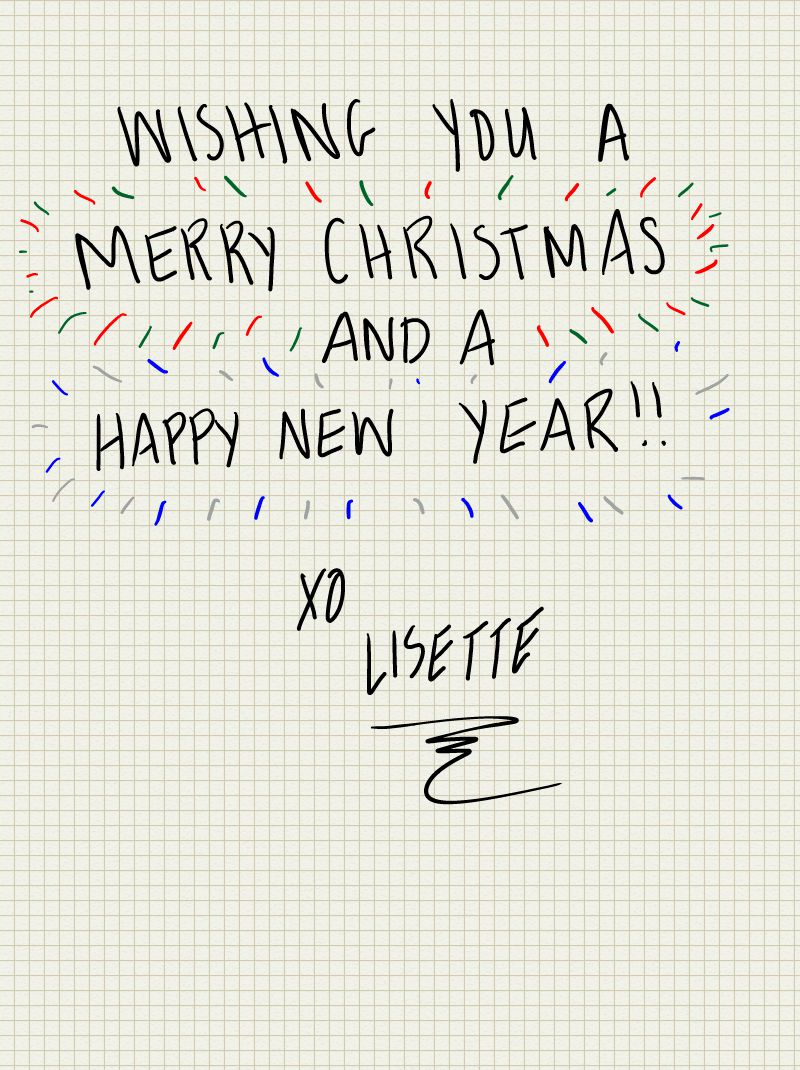 WISHING YOU A
MERRY CHRISTMAS
AND A
HAPPY NEW YEAR!!
XO
LISETTE